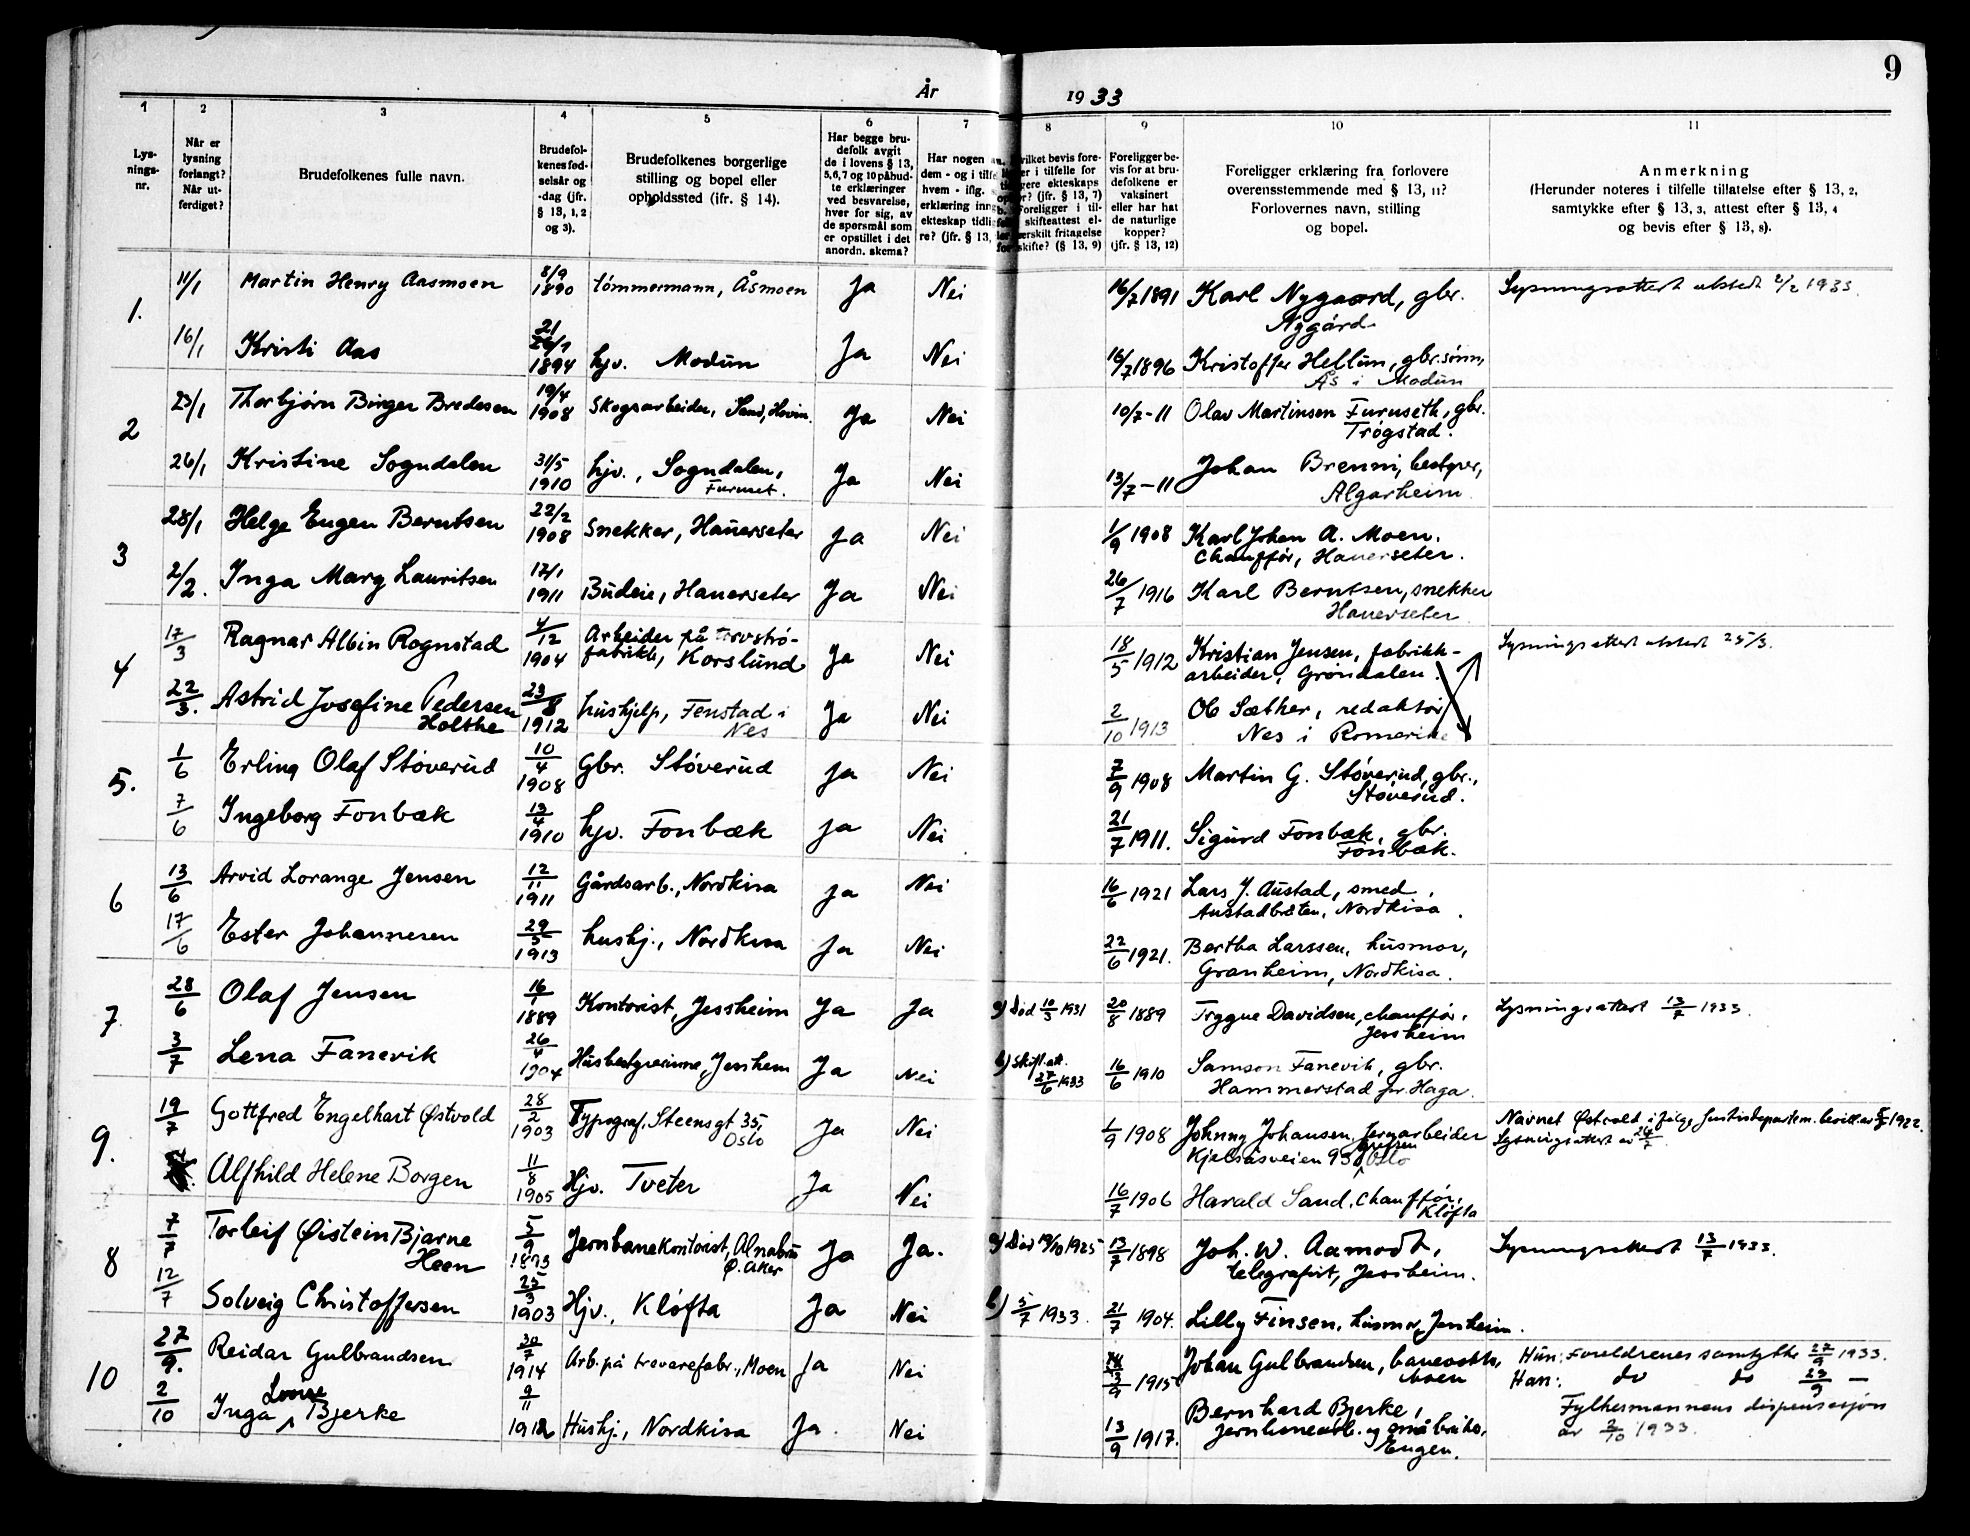 9
År 1933
1 2 3 4 5 6 7 8 9 10 11
Lys-
nings-
nr.
Når er
lysning
forlangt?
Når ut-
ferdiget?
Brudefolkenes fulle navn.
Brudefol-
kenes fød-
selsår og
-dag (jfr.
§ 13, 1, 2
og 3).
Brudefolkenes borgerlige
stilling og bopel eller
opholdssted (ifr. § 14).
Har begge bru-
defolk avgit
de i lovens § 13,
5,6,7 og 10 påbud-
te erklæringer
ved besvarelse,
hver for sig, av
de spørsmål som
er opstillet i det
anordn. skema?
Har nogen
dem - og i tilfe
hvem - ifig.
erklæring inng
ekteskap tidli
re? (jfr. § 13,
vilket bevis fore-
er i tilfelle for
gere ekteskaps
r? (jfr. § 13, 7)
Foreligger i til-
skifteattest el-
erskilt fritagelse
skifte? (§ 13, 9)
Foreligger be-
vis for at bru-
defolkene er
vaksinert
eller har hat
de naturlige
kopper?
(jfr. § 13, 12)
Foreligger erklæring fra forlovere
overensstemmende med § 13, 11?
Forlovernes navn, stilling
og bopel.
Anmerkning
(Herunder noteres i tilfelle tillatelse efter § 13, 2,
samtykke efter § 13, 3, attest efter § 13, 4
og bevis efter § 13, 8).
1. 11/1 Martin Henry Aasmoen 8/9 1890 tømmermann, Åsmoen Ja Nei 16/7 1891 Karl Nygaard, gbr. Lysningsattest utstedt 2/2 1933.
Nygård
16/1 Kristi Aas 21 1894 hjv. Modum Ja Nei 16/7 1896 Kristoffer Hellum, gbr.sønn,
Ås i Modum
2 23/1 Thorbjørn Birger Bredesen 19/4 1908 Skogsarbeider, Sand, Hovin. Ja Nei 10/7-11 Olav Martinsen Furuseth, gbr.
Trøgstad.
26/1 Kristine Sogndalen 31/5 1910 hjv., Sogndalen, Ja Nei 13/7-11 Johan Brenni, bestyrer,
Furuset. Algarheim
3 28/1 Helge Eugen Berntsen 22/2 1908 Snekker, Hauerseter Ja Nei 1/9 1908 Karl Johan A. Moen.
Chauffør, Hauerseter.
2/2. Inga Marg Lauritsen 17/1 1911 Budeie, Hauerseter Ja Nei 26/7 1916 Karl Berntsen, snekker
Hauerseter
4 17/3 Ragnar Albin Rognstad 4/12 1904 Arbeider på torvstrø- Ja Nei 18/5 1912 Kristian Jensen, fabrikk- Lysningsattest utstedt 25/3.
fabrikk, Korslund arbeider, Grøndalen.
22/3. Astrid Josefine Pedersen 23/8 1912 hushjelp, Fenstad i Ja Nei 2/10 1913 Ole Sæther, redaktør
Holthe Nes Nes i Romerike
5. 1/6 Erling Olaf Støverud 10/4 1908 Gbr. Støverud Ja Nei 7/9 1908 Martin G. Støverud, gbr.,
Støverud.
7/6 Ingeborg Fonbæk 13/4 1910 hjv. Fonbæk Ja Nei 21/7 1911. Sigurd Fonbæk, gbr.
Fonbæk.
6 13/6 Arvid Lorange Jensen 12/11 1911 Gårdsarb., Nordkisa Ja Nei 16/6 1921 Lars J. Austad, smed,
Austadbråten, Nordkisa.
17/6 Ester Johannesen 29/5 1913 hushj., Nordkisa Ja Nei 22/6 1921. Bertha Larssen, husmor,
Granheim, Nordkisa.
7 28/6 Olaf Jensen 16/1 1889 Kontorist, Jessheim Ja Ja a) Død 10/3 1931 20/8 1889 Trygve Davidsen, chauffør. Lysningsattest 13/7 1933.
Jessheim
3/7 Lena Fanevik 26/4 1904 Husbestyrerinne, Jessheim Ja Nei b) Skift.att. 27/6 1933 16/6 1910 Samson Fanevik, gbr.
Hammerstad pr Haga.
9. 19/7 Gottfred Engelhart Østvold 28/2 1903 Typograf, Steensgt 35, Ja Nei 1/9 1908 Johnny Johansen, Jernarbeider Navnet Østvold ifølge Justisdepartem. bevill. av 1922.
Oslo Kjelsåsveien 93 Grefsen Oslo Lysningsattest av 24/7
Alfhild Helene Borgen 11/8 1905 Hjv. Tveter Ja Nei 16/7 1906 Harald Sand, Chauffør,
Kløfta
8 7/7 Torleif Øistein Bjarne 5/9 1893 Jernbanekontorist, Alnabru Ja Ja. a) Død 19/10 1925 13/7 1898 Joh. W. Aamodt, Lysningsattest 13/7 1933.
Heen Ø. Aker telegrafist, Jessheim.
12/7 Solveig Christoffersen 25/3 1903 Hjv., Kløfta Ja Nei b) 5/7 1933. 21/7 1904. Lilly Finsen, husmor, Jessheim.
10 27/9. Reidar Gulbrandsen 30/7 1914 Arb. på trevarefabr., Moen Ja Nei 1915 Johan Gulbrandsen, banevokter, Hun: Foreldrenes samtykke 27/9 1933.
Moen Han: do do 23/9 —
2/10 Inga Bjerke 9/11 1912 Hushj., Nordkisa Ja. Nei 13/9 1917. Bernhard Bjerke, Fylkesmannens dispensasjon
jernbanearb. og småbruker, av 2/10 1933.
Engen.